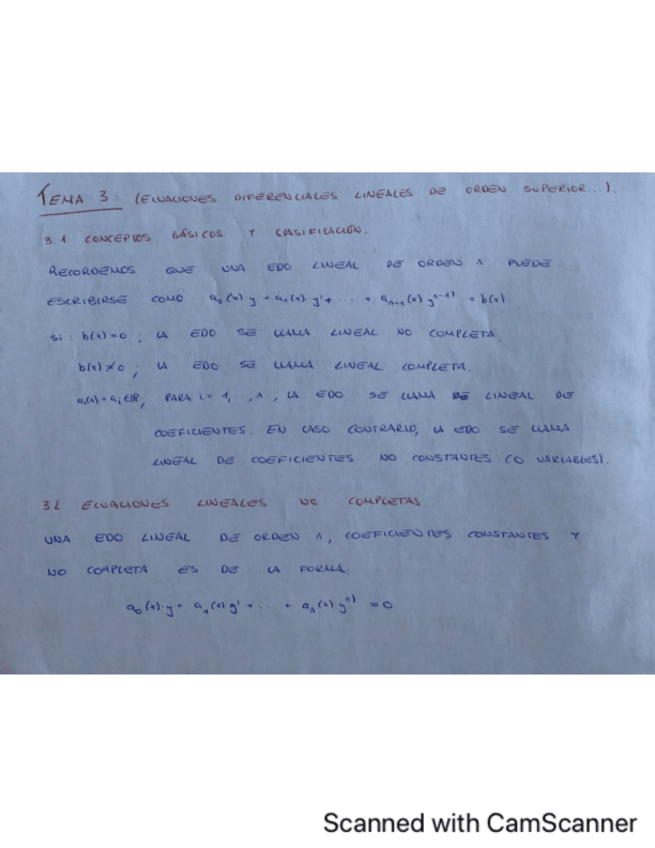 TEMA 3: (ECUACIONES DIFERENCIALES LINEALES DE ORDEN SUPERIOR...).
3.1 CONCEPTOS BÁSICOS Y CASIFICACIÓN.
RECORDEMOS QUE UNA EDO LINEAL DE ORDEN n PUEDE
ESCRIBIRSE COMO a₀(x) y + a₁(x) y' + ... + aₙ₋₁(x) yⁿ⁻¹⁾ = b(x)
si: b(x)=0; LA EDO SE LLAMA LINEAL NO COMPLETA.
b(x)≠0; LA EDO SE LLAMA LINEAL COMPLETA.
aᵢ(x)=aᵢ∈ℝ; PARA i= 1,...,n, LA EDO SE LLAMA LINEAL DE
COEFICIENTES. EN CASO CONTRARIO, LA EDO SE LLAMA
LINEAL DE COEFICIENTES NO CONSTANTES (O VARIABLES).
3.2 ECUACIONES LINEALES NO COMPLETAS.
UNA EDO LINEAL DE ORDEN n, COEFICIENTES CONSTANTES Y
NO COMPLETA ES DE LA FORMA:
a₀(x)·y + a₁(x) y' + ... + aₙ(x) yⁿ⁾ = 0
Scanned with CamScanner